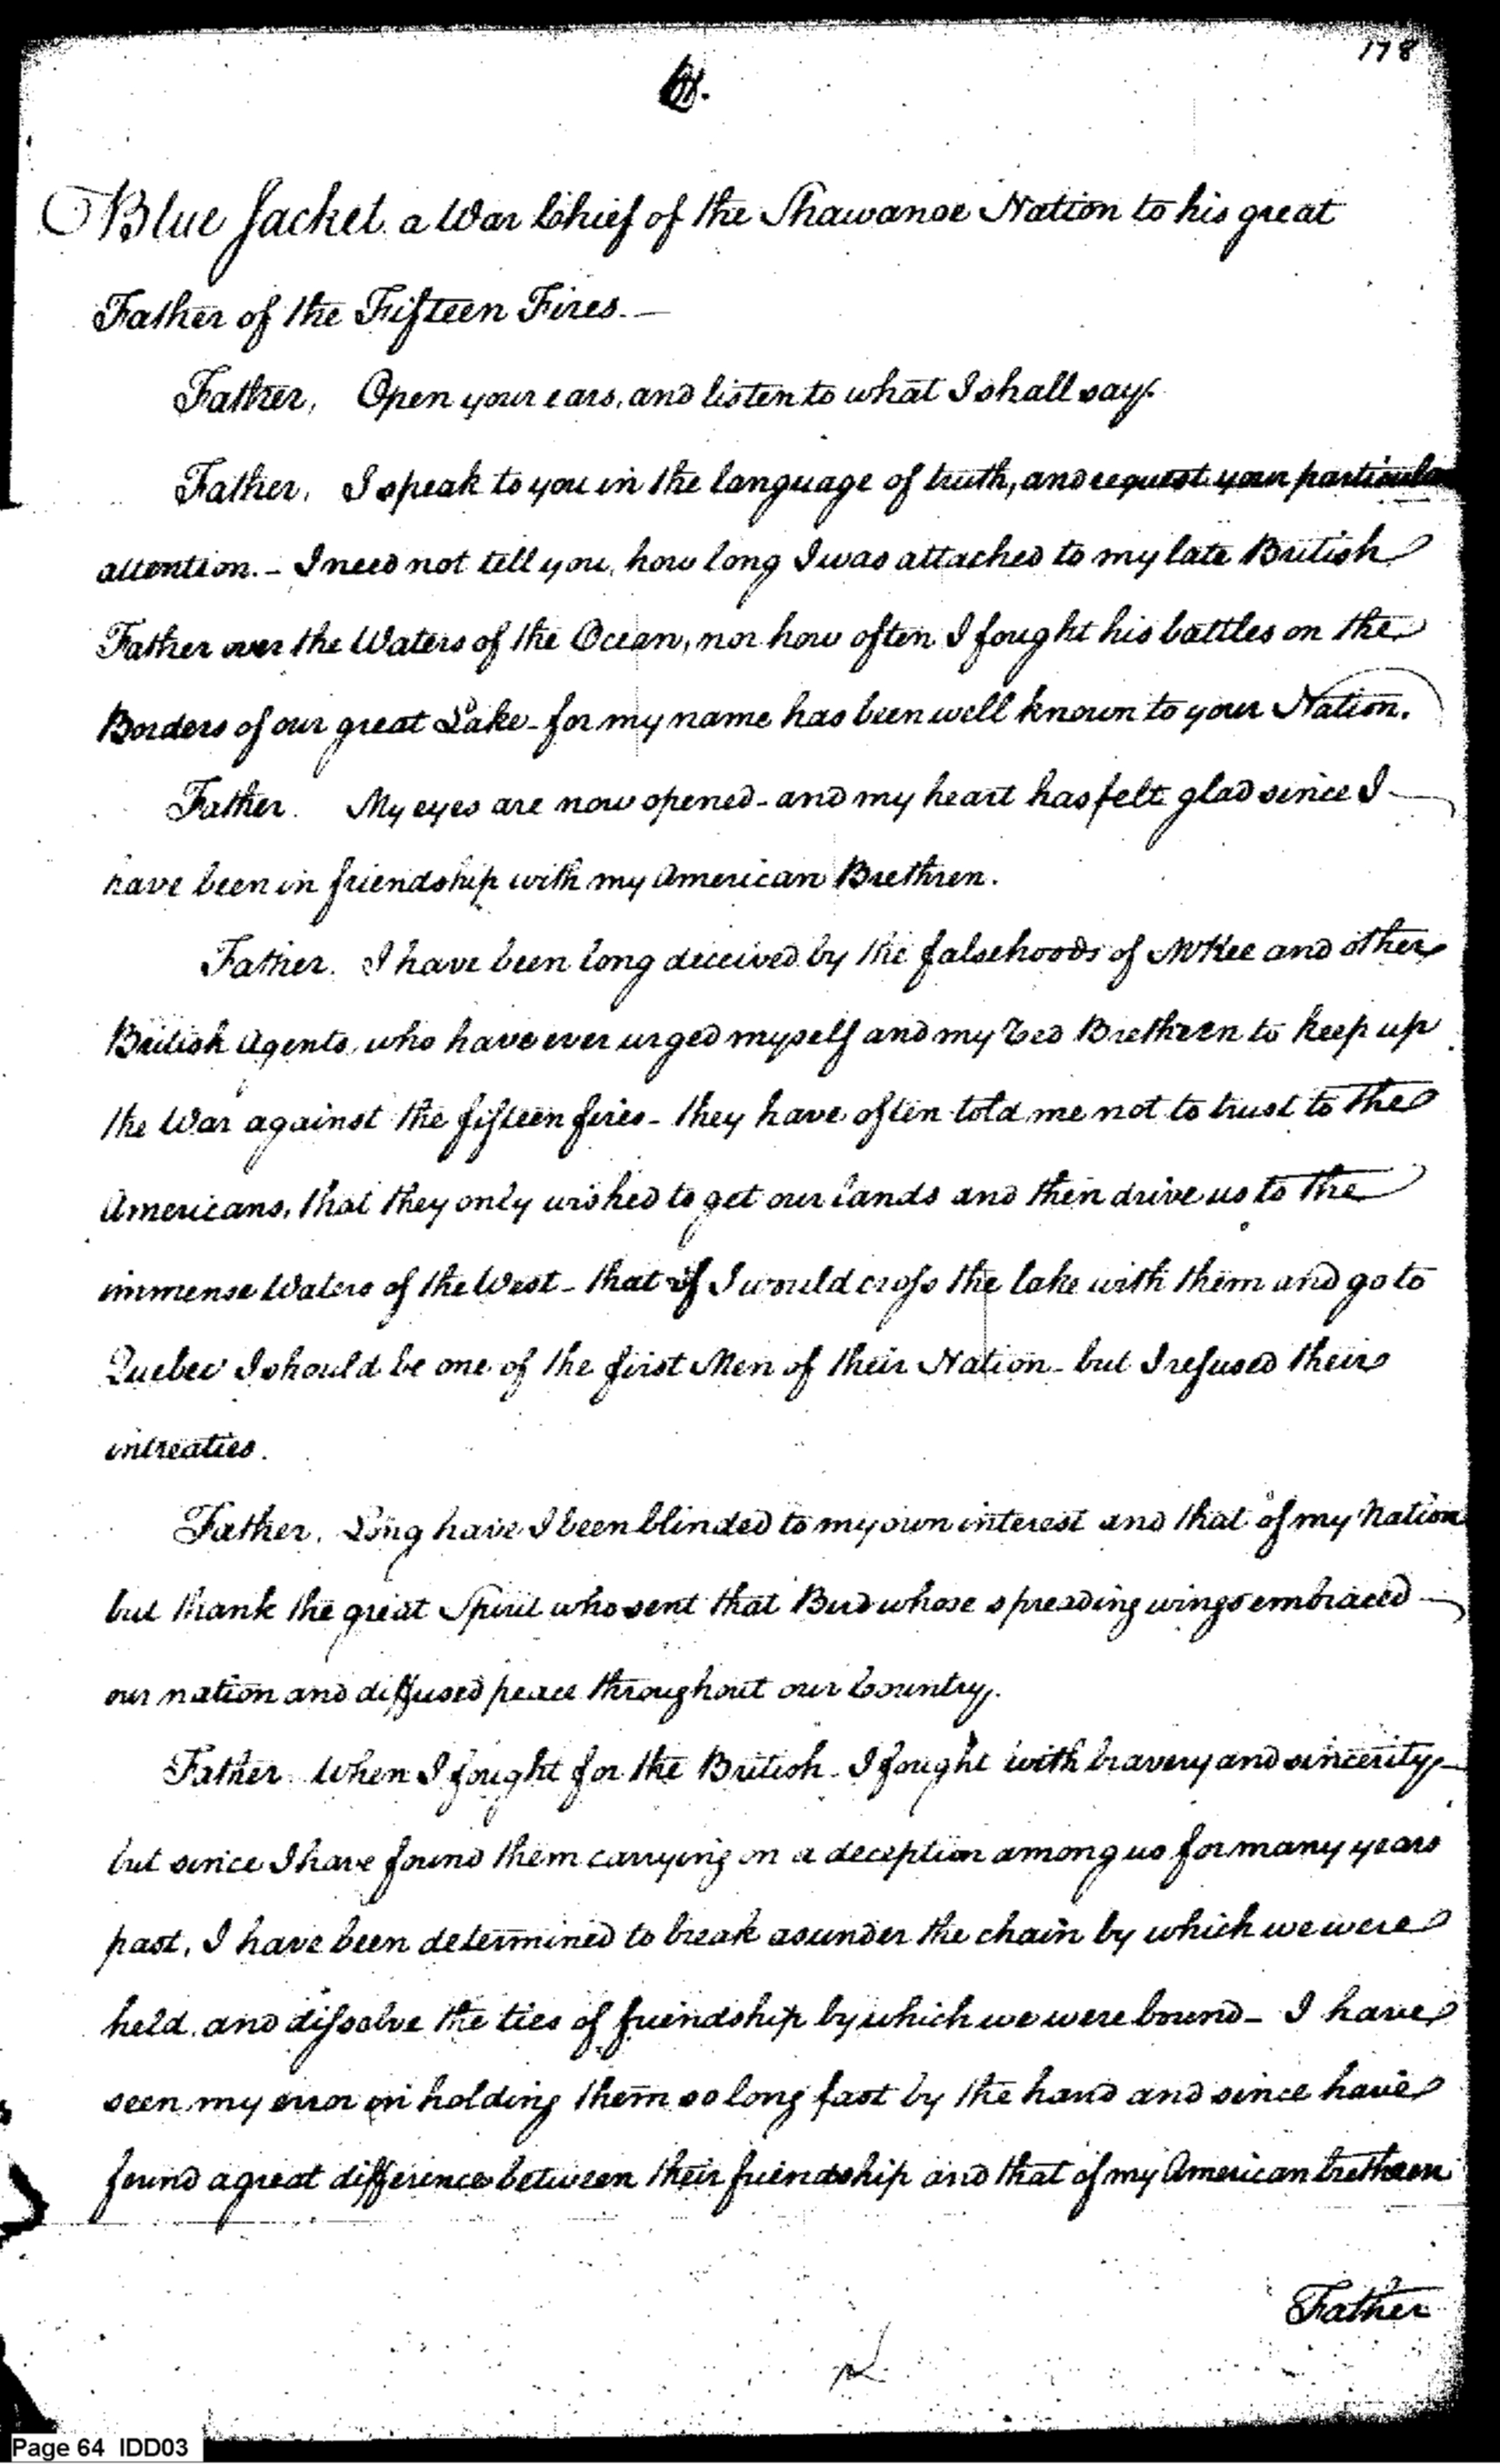 178
Blue Jacket a War Chief of the Shawanoe Nation to his great
Father of the Fifteen Fires. —
Father, Open your ears, and listen to what I shall say.
Father, I speak to you in the language of truth, and request your particular
attention. - I need not tell you, how long I was attached to my late British
Father over the Waters of the Ocean, nor how often I fought his battles on the
Borders of our great Lake - for my name has been well known to your Nation.
Father. My eyes are now opened - and my heart has felt glad since I
have been in friendship with my American Brethren.
Father. I have been long deceived by the falsehoods of McKee and other
British Agents, who have ever urged myself and my red Brethren to keep up
the War against the fifteen fires - they have often told me not to trust to the
Americans, that they only wished to get our lands and then drive us to the
immense Waters of the West - that if I would cross the lake with them and go to
Quebec I should be one of the first Men of their Nation - but I refused their
intreaties.
Father, Long have I been blinded to my own interest and that of my Nation
but thank the great Spirit who sent that Bird whose spreading wings embraced
our nation and diffused peace throughout our Country.
Father. When I fought for the British - I fought with bravery and sincerity -
but since I have found them carrying on a deception among us for many years
past, I have been determined to break asunder the chain by which we were
held, and dissolve the ties of friendship by which we were bound - I have
seen my error in holding them so long fast by the hand and since have
found a great difference between their friendship and that of my American brethren
Father
Page 64 IDD03